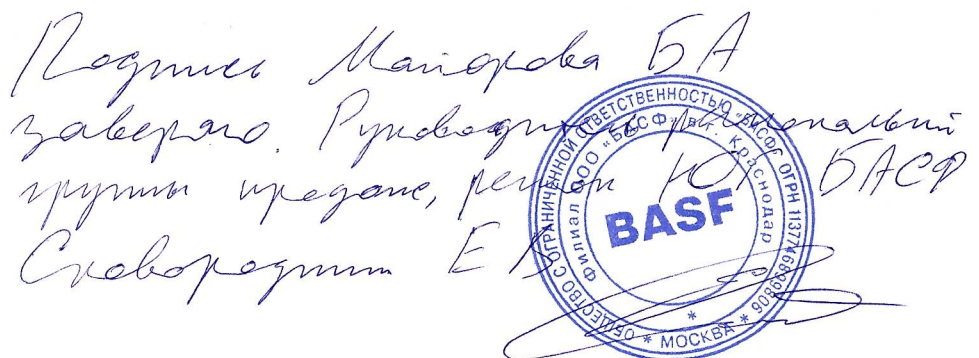 Подпись Майорова БА
заверяю. Руководитель региональной
группы продаж, регион Юг БАСФ
Сковородин Е В
ОБЩЕСТВО С ОГРАНИЧЕННОЙ ОТВЕТСТВЕННОСТЬЮ «БАСФ» ОГРН 1137746899806
* МОСКВА *
Филиал ООО «БАСФ» в г. Краснодар
*
BASF